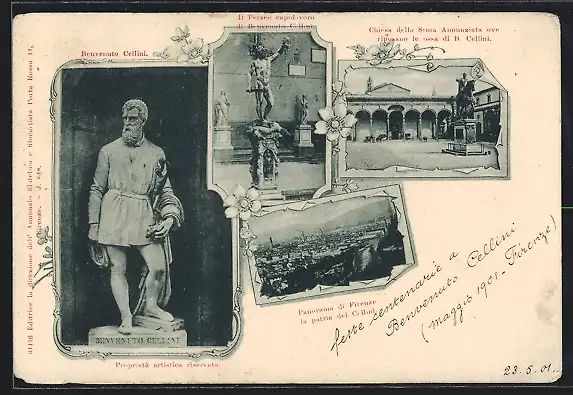 Benvenuto Cellini.
Il Perseo capolavoro
di Benvenuto Cellini.
Chiesa della Sma Annunziata ove
riposano le ossa di B. Cellini.
Panorama di Firenze
la patria del Cellini
BENVENUTO CELLINI
Proprietà artistica riservata.
31416 Editrice la direzione dell' Annunzio filatelico e filocartista Porta Rossa
Firenze.
feste centenarie a
Benvenuto Cellini
(maggio 1901 - Firenze)
23.5.01..